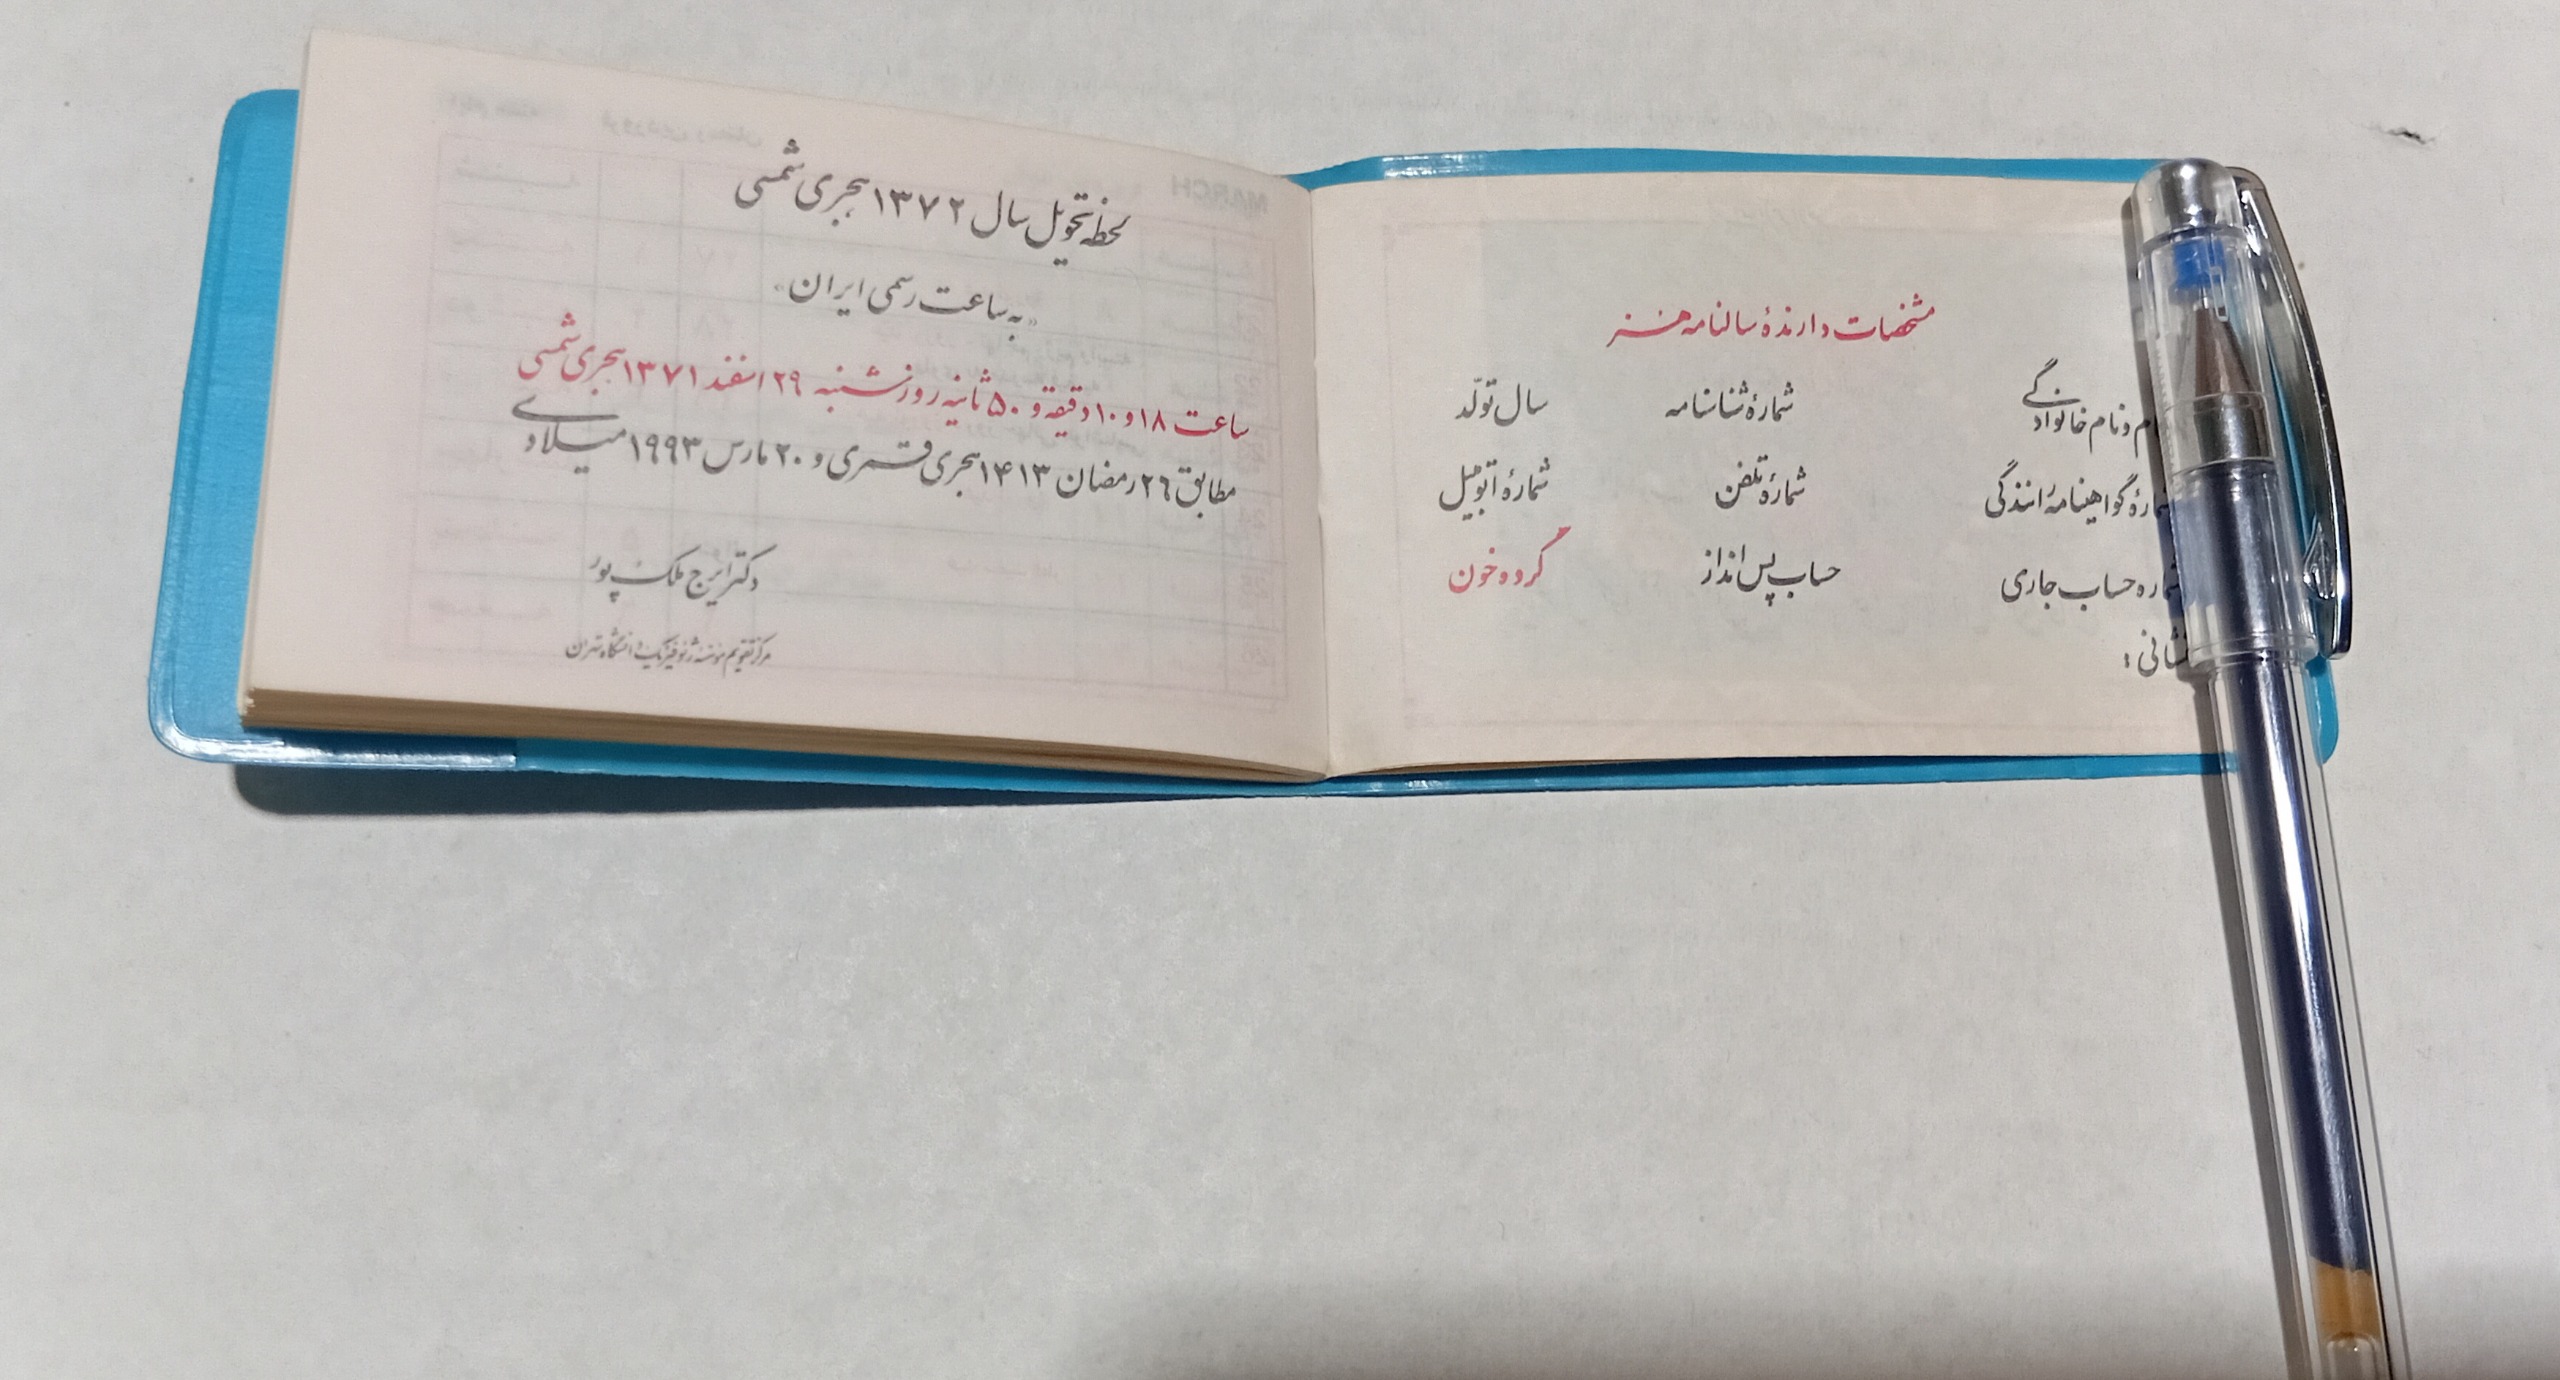 مشخصات دارندهٔ سالنامه هنر
نام و نام خانوادگی شمارهٔ شناسنامه سال تولّد
شمارهٔ گواهینامه رانندگی شمارهٔ تلفن شمارهٔ اتومبیل
شماره حساب جاری حساب پس انداز گروه خون
نشانی :
لحظه تحویل سال ۱۳۷۲ هجری شمسی
«به ساعت رسمی ایران»
ساعت ۱۸ و ۱۰ دقیقه و ۵۰ ثانیه روز شنبه ۲۹ اسفند ۱۳۷۱ هجری شمسی
مطابق ۲۶ رمضان ۱۴۱۳ هجری قمری و ۲۰ مارس ۱۹۹۳ میلادی
دکتر ایرج ملک پور
مرکز تقویم موسسه ژئوفیزیک دانشگاه تهران
MARCH